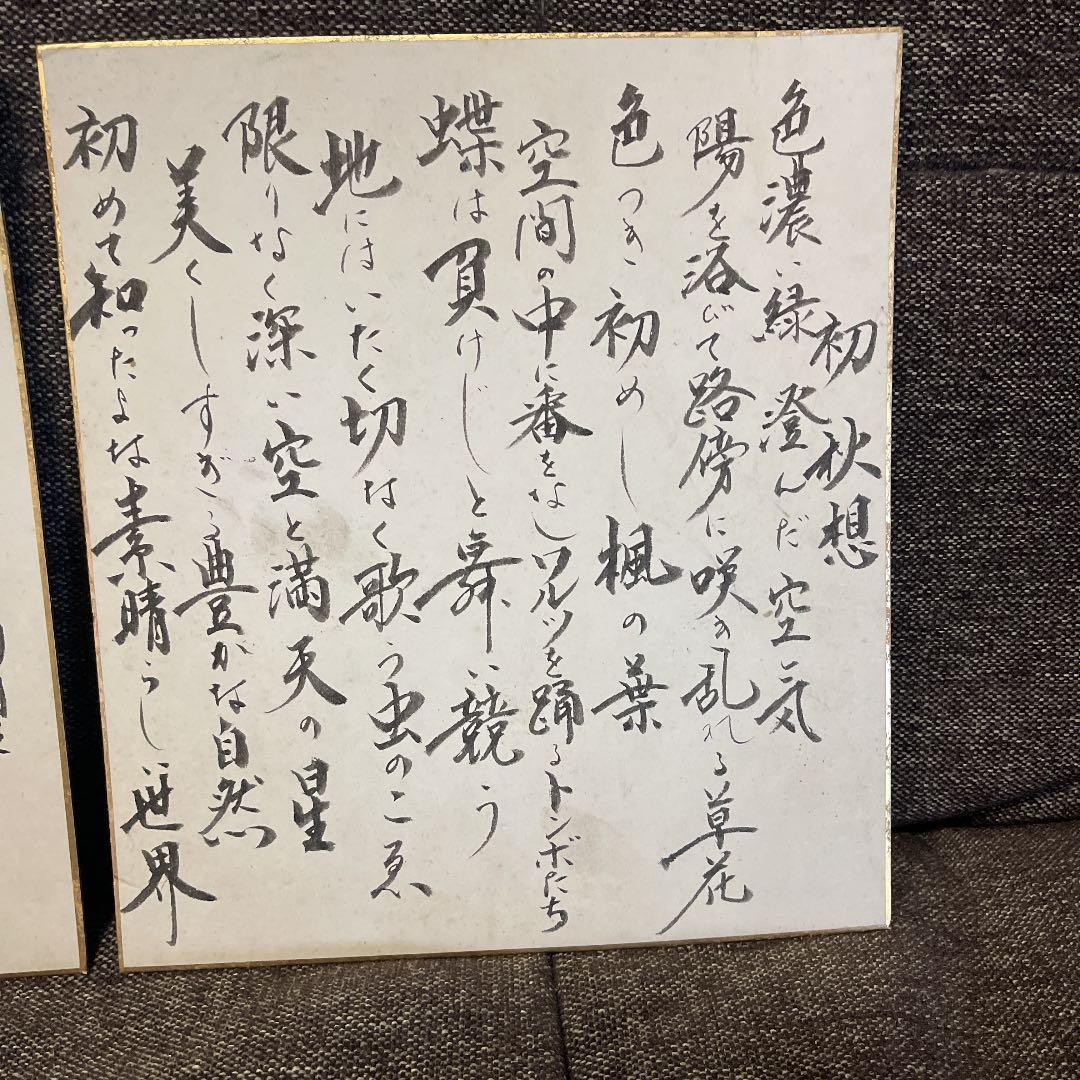 初秋想
色濃い緑 澄んだ空気
陽を浴びて路傍に咲き乱れる草花
色つき初めし楓の葉
空間の中に番をなしワルツを踊るトンボたち
蝶は負けじと舞い競う
地にはいたく切なく歌う虫のこゑ
限りなく深い空と満天の星
美くしすぎる豊かな自然
初めて知ったよな素晴らしい世界